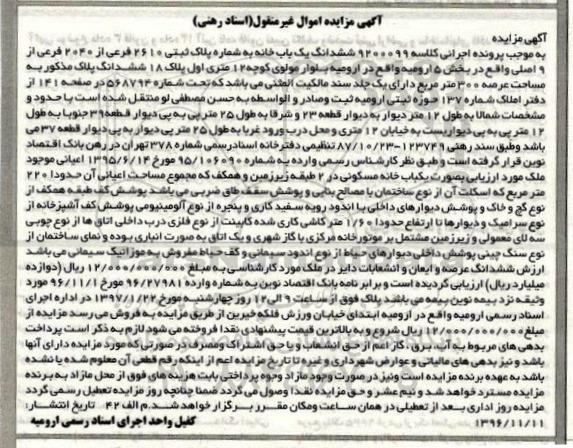 آگهی مزایده اموال غیرمنقول(اسناد رهنی)
آگهی مزایده
به موجب پرونده اجرائی کلاسه ۹۲۰۰۰۹۹ ششدانگ یک باب خانه به شماره پلاک ثبتی ۲۶۱۰ فرعی از ۲۰۴۰ فرعی از
۹ اصلی واقع در بخش ۵ ارومیه واقع در ارومیه بلوار مولوی کوچه ۱۲ متری اول پلاک ۱۸ ششدانگ پلاک مذکور به
مساحت عرصه ۳۰۰ متر مربع دارای یک جلد سند مالکیت المثنی می باشد که تحت شماره ۵۶۸۷۹۴ در صفحه ۱۴۱ از
دفتر املاک شماره ۱۳۷ حوزه ثبتی ارومیه ثبت وصادر و الواسطه به حسن مصطفی لو منتقل شده است با حدود و
مشخصات شمالا به طول ۱۲ متر دیوار به دیوار قطعه ۲۳ و شرقا به طول ۲۵ متر پی به پی دیوار قطعه ۳۹ جنوبا به طول
۱۲ متر پی به پی دیواریست به خیابان ۱۲ متری و محل درب ورود غربا به طول ۲۵ متر پی دیوار به پی دیوار قطعه ۳۷ می
باشد وطبق سند رهنی ۱۲۳۷۴۹-۸۷/۱۰/۲۳ تنظیمی دفترخانه اسنادرسمی شماره ۳۷۸ تهران در رهن بانک اقتصاد
نوین قرار گرفته است و طبق نظر کارشناس رسمی وارده به شماره ۹۵/۱۰۶۰۹۰ مورخ ۱۳۹۵/۶/۱۴ اعیانی موجود
ملک مورد ارزیابی بصورت یکباب خانه مسکونی در ۲ طبقه زیرزمین و همکف که مجموع مساحت اعیانی آن حدودا ۲۲۰
متر مربع که اسکلت آن از نوع ساختمان با مصالح بنایی و پوشش سقف طاق ضربی می باشد پوشش کف طبقه همکف از
نوع گچ و خاک و پوشش دیوارهای داخلی با اندود رویه سفید کاری و پنجره از نوع آلومینیومی پوشش کف آشپزخانه از
نوع سرامیک و دیوارها تا ارتفاع حدودا ۱/۶۰ متر کاشی کاری شده کابینت از نوع فلزی درب داخلی اتاق ها از نوع چوبی
سه لای معمولی و زیرزمین مشتمل بر موتورخانه مرکزی با گاز شهری و یک اتاق به صورت انباری بوده و نمای ساختمان از
نوع سنگ چینی پوشش داخلی دیوار های حیاط از نوع اندود سیمانی و کف حیاط مفروش به موزائیک سیمانی می باشد
ارزش ششدانگ عرصه و اعیان و انشعابات دایر در ملک مورد کارشناسی به مبلغ ۱۲/۰۰۰/۰۰۰/۰۰۰ ریال (دوازده
میلیارد ریال) ارزیابی گردیده است و برابر نامه بانک اقتصاد نوین به شماره وارده ۹۶/۲۷۹۸۱ مورخ ۹۶/۱۱/۱ مورد
وثیقه نزد بیمه نوین بیمه می باشد پلاک فوق از ساعت ۹ الی ۱۲ روز چهارشنبه مورخ ۱۳۹۷/۱/۲۲ در اداره اجرای
اسناد رسمی ارومیه واقع در ارومیه ابتدای خیابان ورزش فلکه خیرین از طریق مزایده به فروش می رسد مزایده از
مبلغ ۱۲/۰۰۰/۰۰۰/۰۰۰ ریال شروع و به بالاترین قیمت پیشنهادی نقدا فروخته می شود لازم به ذکر است پرداخت
بدهی های مربوط به آب، برق، گاز اعم از حق انشعاب و یا حق اشتراک ومصرف در صورتی که مورد مزایده دارای آنها
باشد و نیز بدهی های مالیاتی و عوارض شهرداری و غیره تا تاریخ مزایده اعم از اینکه رقم قطعی آن معلوم شده یا نشده
باشد به عهده برنده مزایده است ونیز در صورت وجود مازاد وجوه پرداختی بابت هزینه های فوق از محل مازاد به برنده
مزایده مسترد خواهد شد و نیم عشر و حق مزایده نقدا وصول می گردد ضمنا چنانچه روز مزایده تعطیل رسمی گردد
مزایده روز اداری بعد از تعطیلی در همان ساعت ومکان مقرر برگزار خواهد شد. م الف ۴۲ تاریخ انتشار:
۱۳۹۶/۱۱/۱۱ کفیل واحد اجرای اسناد رسمی ارومیه